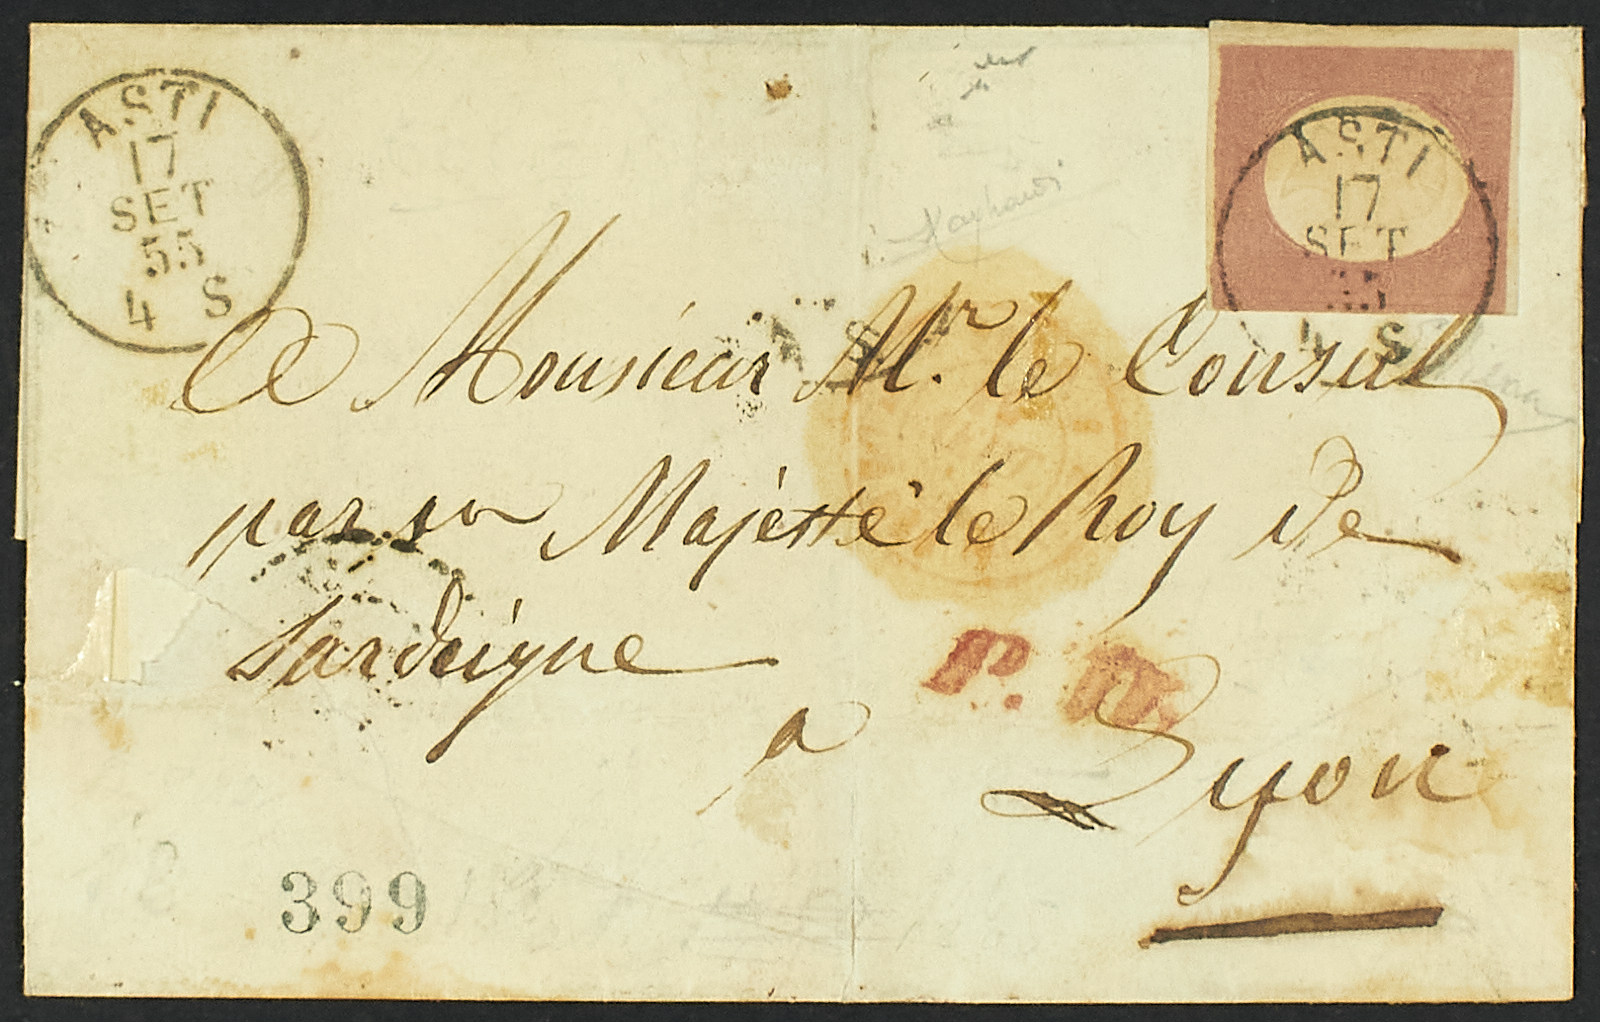 ASTI
17
SET
55
4 S
ASTI
17
SET
55
4 S
A Monsieur Mr. le Consul
par sa Majesté le Roy de
Sardeigne
P.
a
Lyon
399